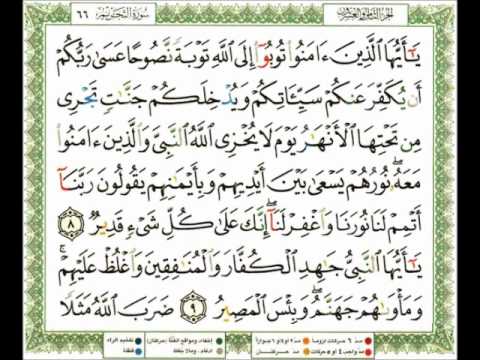 الجزء الثامن والعشرون
سورة التحريم ٦٦
يَٰٓأَيُّهَا ٱلَّذِينَ ءَامَنُوا۟ تُوبُوٓا۟ إِلَى ٱللَّهِ تَوْبَةً نَّصُوحًا عَسَىٰ رَبُّكُمْ
أَن يُكَفِّرَ عَنكُمْ سَيِّـَٔاتِكُمْ وَيُدْخِلَكُمْ جَنَّٰتٍ تَجْرِى
مِن تَحْتِهَا ٱلْأَنْهَٰرُ يَوْمَ لَا يُخْزِى ٱللَّهُ ٱلنَّبِىَّ وَٱلَّذِينَ ءَامَنُوا۟
مَعَهُۥ ۖ نُورُهُمْ يَسْعَىٰ بَيْنَ أَيْدِيهِمْ وَبِأَيْمَٰنِهِمْ يَقُولُونَ رَبَّنَآ
أَتْمِمْ لَنَا نُورَنَا وَٱغْفِرْ لَنَآ ۖ إِنَّكَ عَلَىٰ كُلِّ شَىْءٍ قَدِيرٌ ٨
يَٰٓأَيُّهَا ٱلنَّبِىُّ جَٰهِدِ ٱلْكُفَّارَ وَٱلْمُنَٰفِقِينَ وَٱغْلُظْ عَلَيْهِمْ ۚ
وَمَأْوَىٰهُمْ جَهَنَّمُ ۖ وَبِئْسَ ٱلْمَصِيرُ ٩ ضَرَبَ ٱللَّهُ مَثَلًا